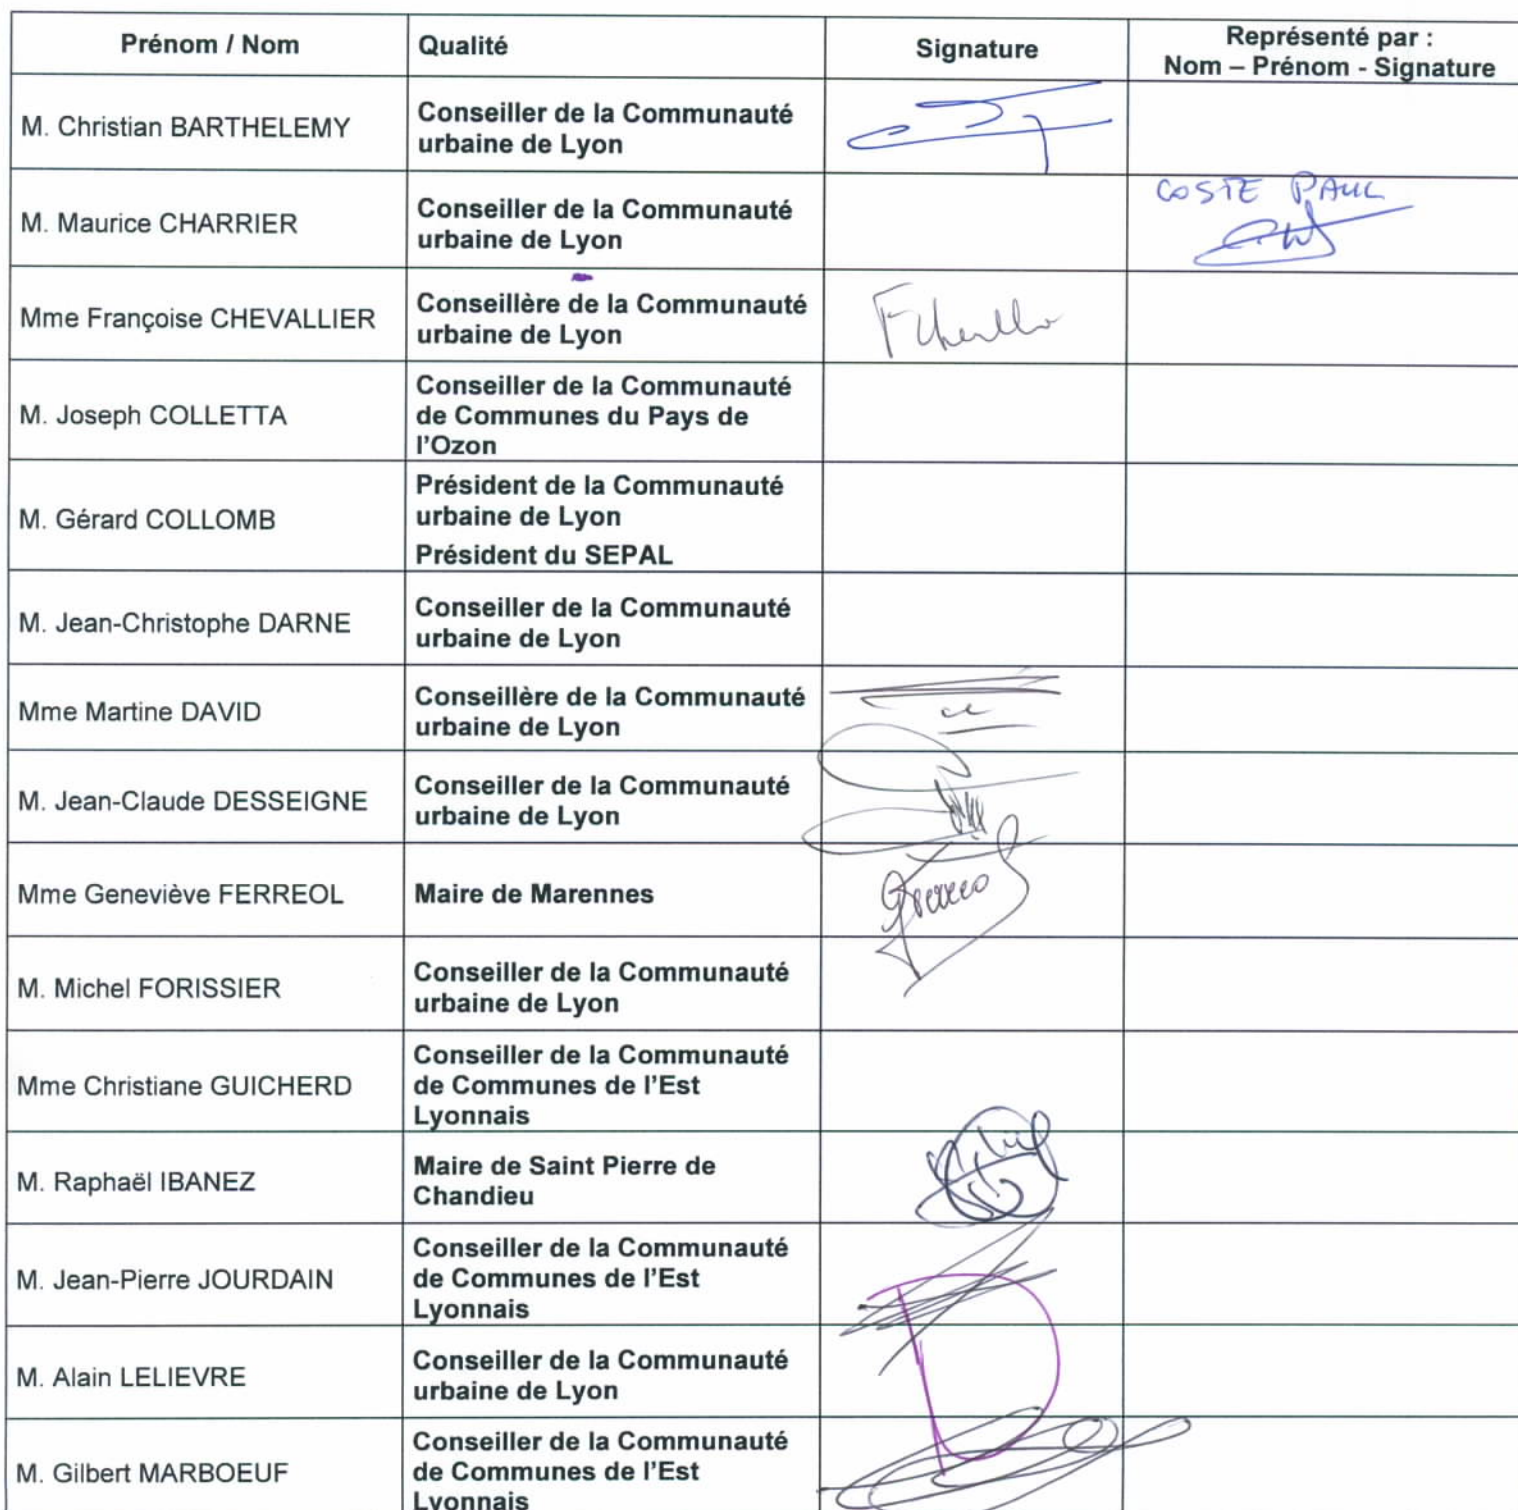 Prénom / Nom
Qualité
Signature
Représenté par :
Nom – Prénom - Signature
M. Christian BARTHELEMY
Conseiller de la Communauté
urbaine de Lyon
M. Maurice CHARRIER
Conseiller de la Communauté
urbaine de Lyon
COSTE PAUL
Mme Françoise CHEVALLIER
Conseillère de la Communauté
urbaine de Lyon
M. Joseph COLLETTA
Conseiller de la Communauté
de Communes du Pays de
l'Ozon
M. Gérard COLLOMB
Président de la Communauté
urbaine de Lyon
Président du SEPAL
M. Jean-Christophe DARNE
Conseiller de la Communauté
urbaine de Lyon
Mme Martine DAVID
Conseillère de la Communauté
urbaine de Lyon
M. Jean-Claude DESSEIGNE
Conseiller de la Communauté
urbaine de Lyon
Mme Geneviève FERREOL
Maire de Marennes
M. Michel FORISSIER
Conseiller de la Communauté
urbaine de Lyon
Mme Christiane GUICHERD
Conseiller de la Communauté
de Communes de l'Est
Lyonnais
M. Raphaël IBANEZ
Maire de Saint Pierre de
Chandieu
M. Jean-Pierre JOURDAIN
Conseiller de la Communauté
de Communes de l'Est
Lyonnais
M. Alain LELIEVRE
Conseiller de la Communauté
urbaine de Lyon
M. Gilbert MARBOEUF
Conseiller de la Communauté
de Communes de l'Est
Lyonnais